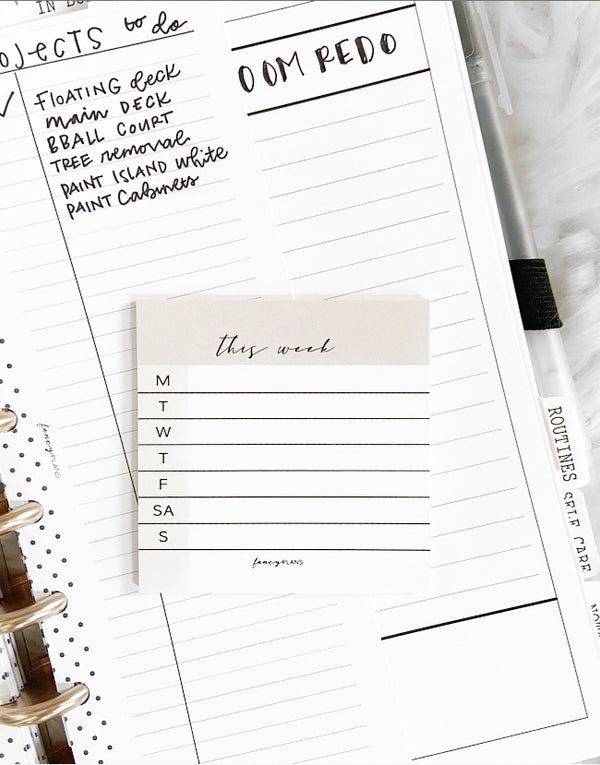 IN
OJECTS to do
OOM REDO
FLOATING deck
main DECK
BBALL COURT
TREE removal
PAINT ISLAND white
PAINT Cabinets
this week
M
T
W
T
F
SA
S
fancyPLANS
fancyPLANS
ROUTINES
SELF CARE